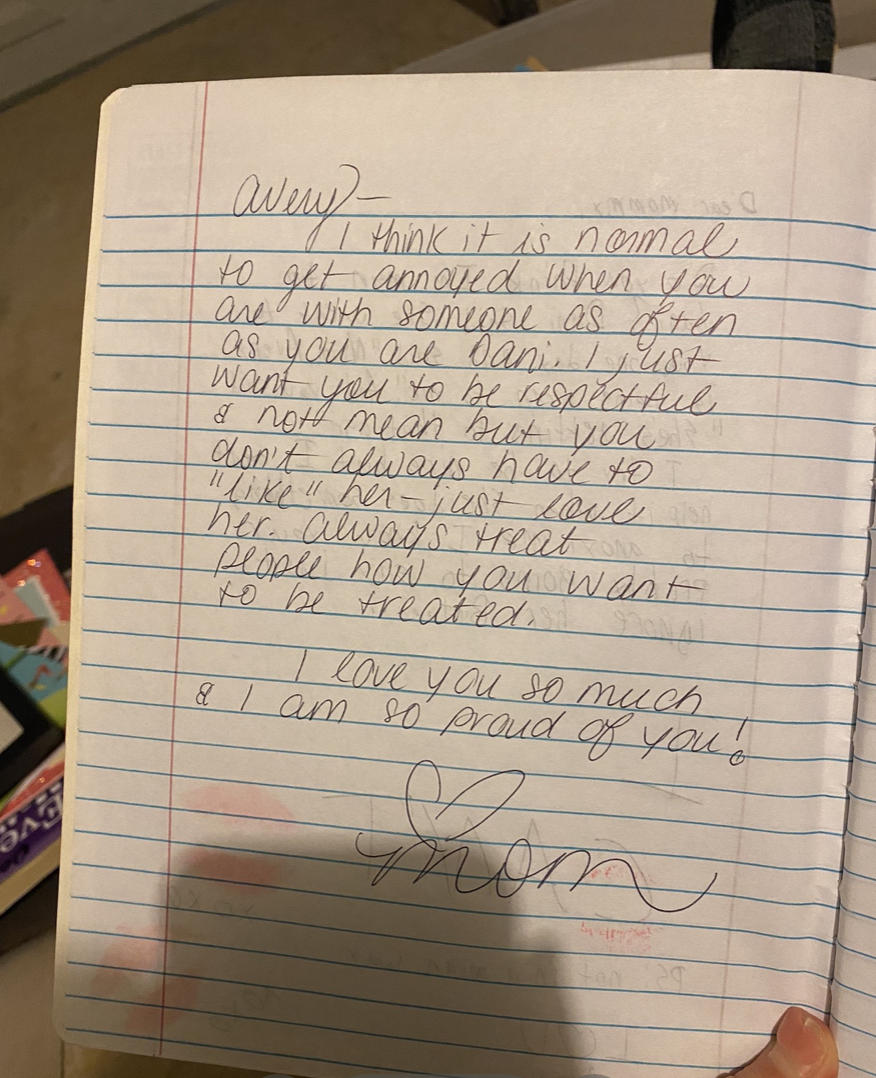 Avery-
I think it is normal
to get annoyed when you
are with someone as often
as you are Dani. I just
want you to be respectful
& not mean but you
don't always have to
"like" her - just love
her. Always treat
people how you want
to be treated.
I love you so much
& I am so proud of you!
Mom
Eve
Dear mommy